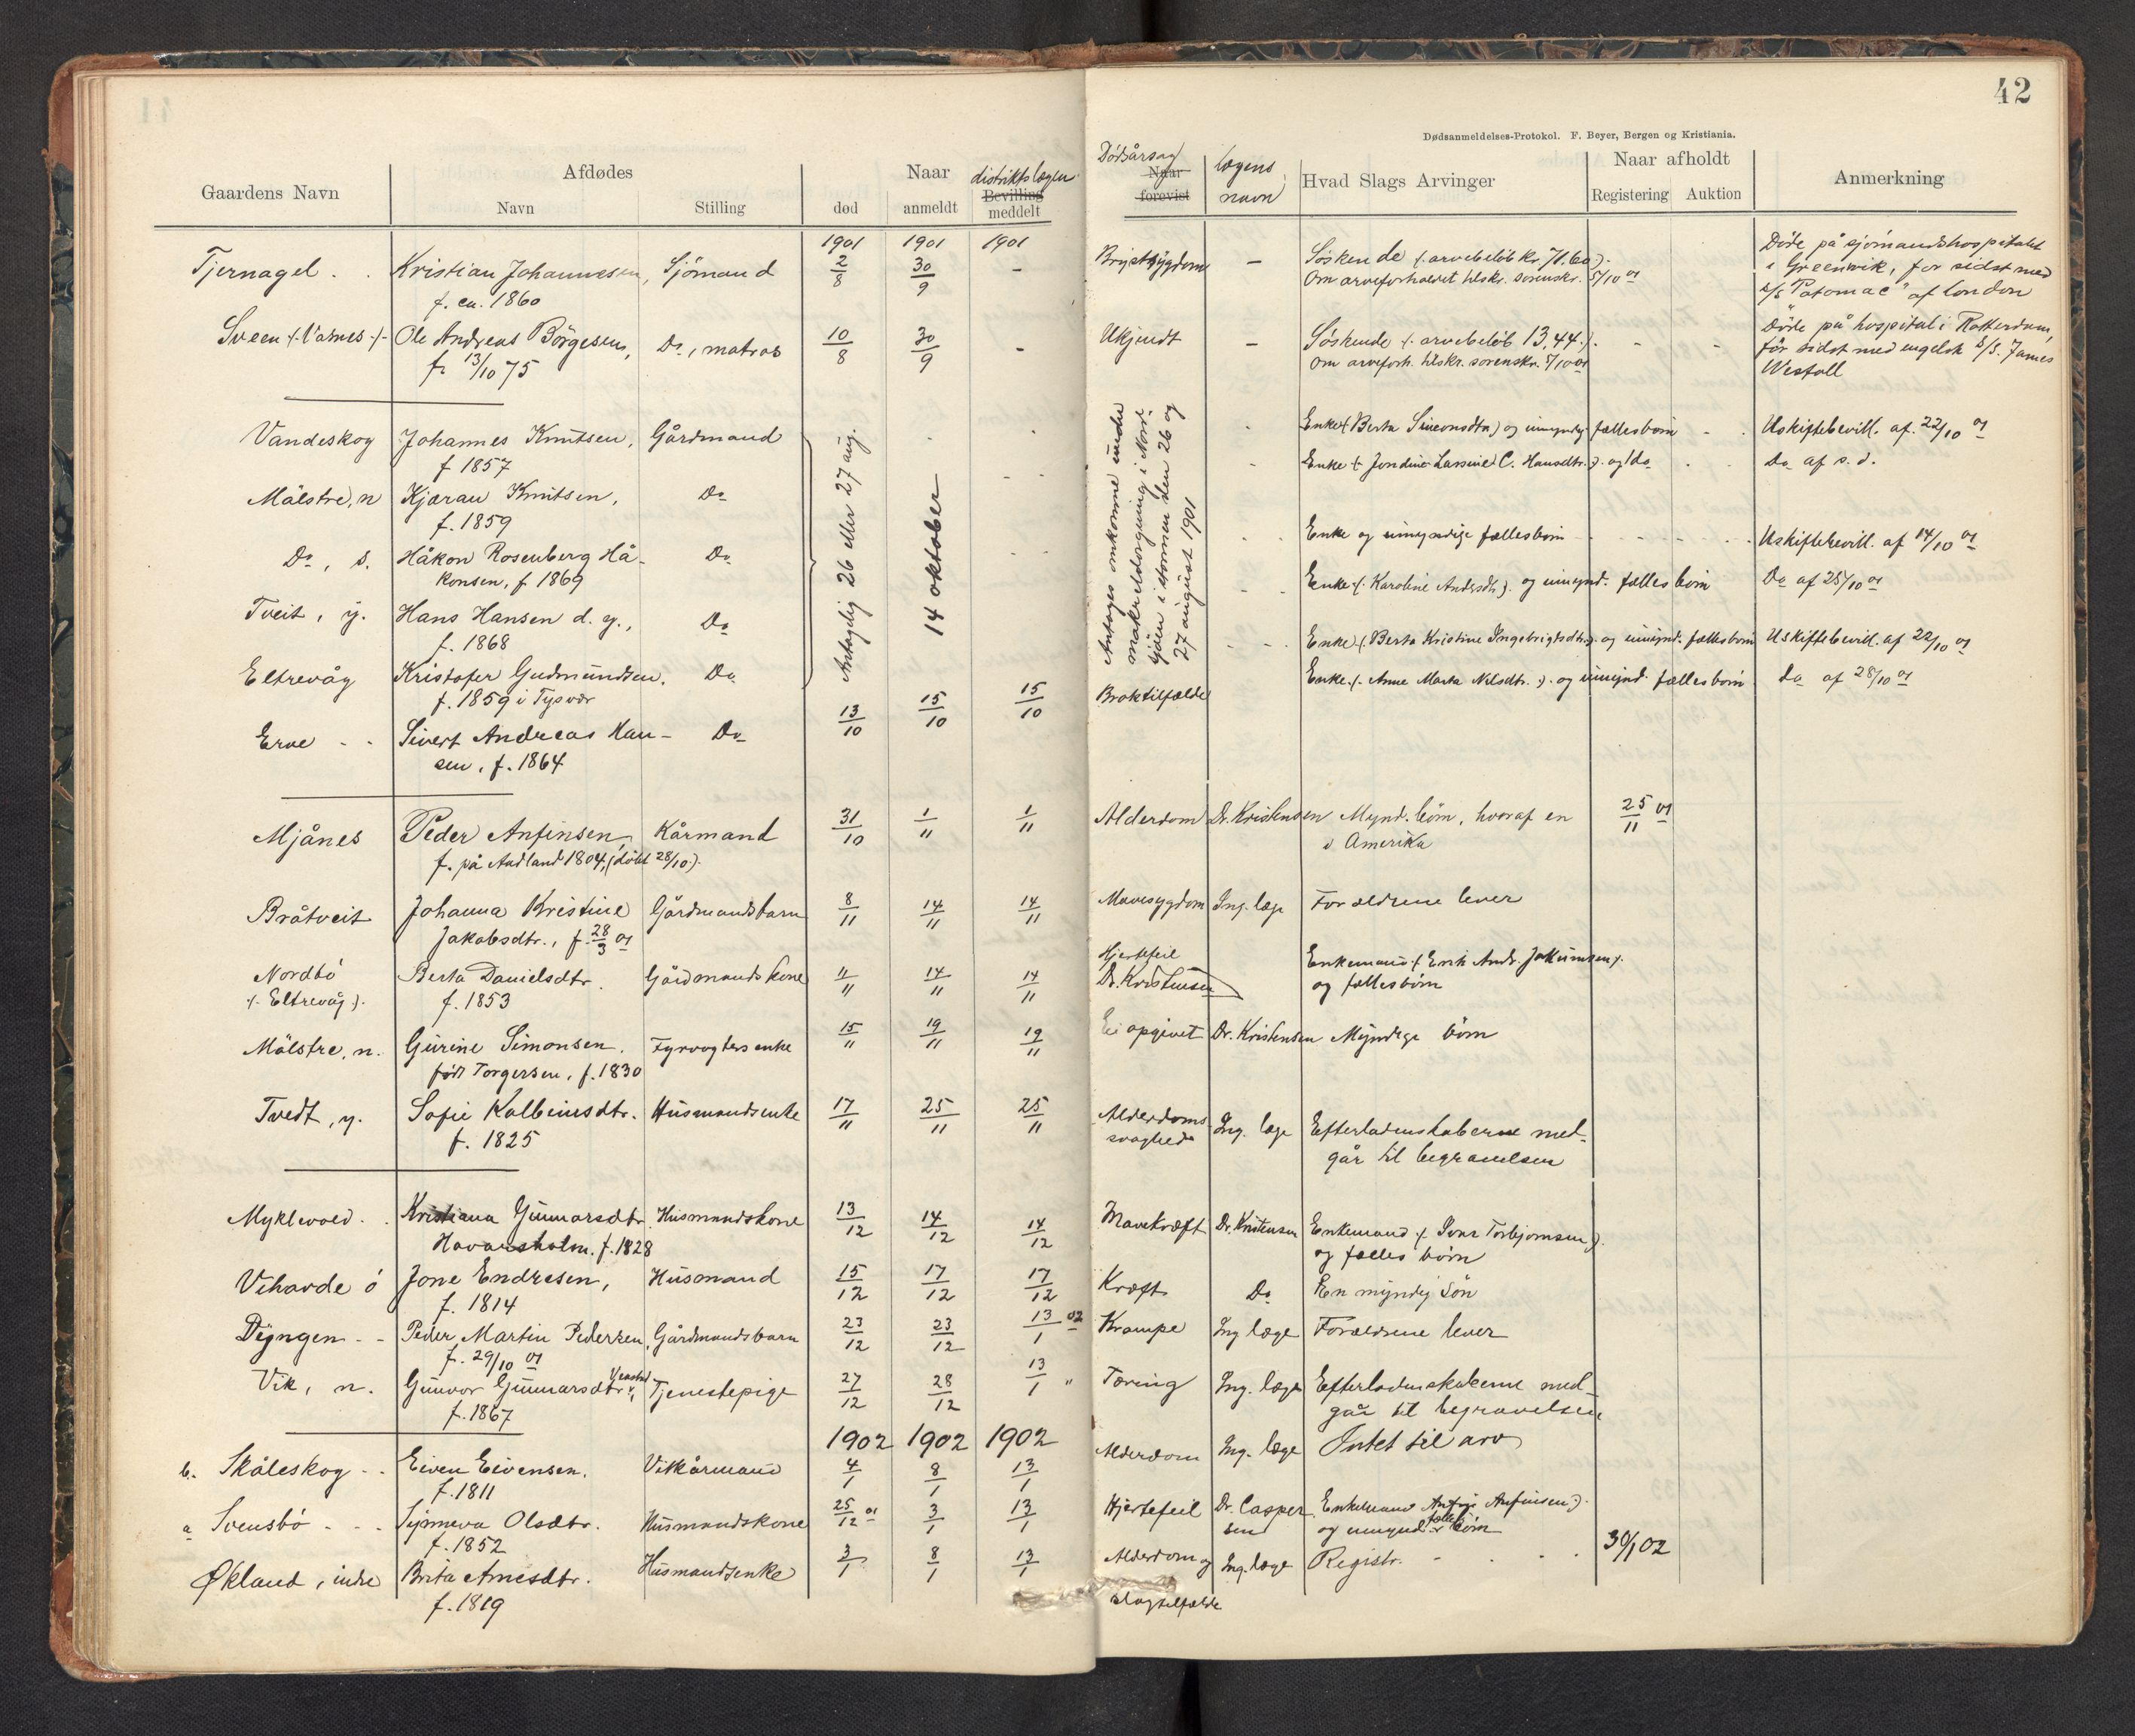 42
Dødsanmeldelses-Protokol. F. Beyer, Bergen og Kristiania.
Gaardens Navn
Afdødes
Navn
Stilling
Naar
død
anmeldt
distriktslægen
Bevilling
meddelt
Dødsårsag
Naar
forevist
lægens
navn
Hvad Slags Arvinger
Naar afholdt
Registering
Auktion
Anmerkning
1901 1901 1901
Tjernagel . . Kristian Johannesen, Sjömand 2/8 30/9 - Brystsygdom - Söskende (: arvebeløb kr. 71.60 :).
f. ca. 1860
Om arveforholdet tilskr. sorenskr. 5/10 01
Döde på sjömandshospitalet
i Greenwik, for sidst med
s/s "Potomac" af London
Sveen (: Vatnes :) - Ole Andreas Börgesen, Do, matros 10/8 30/9 - Ukjendt - Söskende (: arvebeløb 13,44 :). - -
f. 13/10 75
Om arveforh. tilskr. sorenskr. 5/10 01
Döde på hospital i Rotterdam,
för sidst med engelsk s/s. James
Westoll
Vandeskog Johannes Knutsen, Gårdmand
f 1857
Enke (: Berta Simonsdtr) og umyndig. fællesbörn - - Uskiftebevill. af. 22/10 01
Målstre, n Kjæran Knutsen, Do
f. 1859
Enke (: Jondine Lassine C. Hansdtr. :). og Do . . Do af s. d.
Do, s. Håkon Rosenberg Hå-
konsen, f 1869 Do
Enke og umyndige fællesbörn - - - - - Uskiftebevill. af 14/10 01
Tveit, y. Hans Hansen d. y., Do
f. 1868
Enke (: Karoline Andersdtr. :). og umynd. fællesbörn Do af 25/10 01
Eltrevåg Kristofer Gudmundsen. Do
f. 1859 i Tysvær
Enke (: Berta Kristine Ingebrigtsdtr. :) og umynd. fællesbörn Uskiftebevill. af 22/10 01
Antagelig 26 eller 27 aug.
14 oktober
Antages omkomne under
makreldorgning i Nord-
sjöen i stormen den 26 og
27 august 1901
Erve - - Sivert Andreas Han-
sen, f. 1864 Do 13/10 15/10 15/10 Broktilfælde
Enke (: Anne Marta Nilsdtr. :). og umynd. fællesbörn Do af 28/10 01
Mjånes Peder Anfinsen, Kårmand 31/10 1/11 1/11 Alderdom Dr. Kristensen Mynd. börn, hvoraf en 25/11 01
f. på Audland 1804, (döbt 28/10).
i Amerika
Bråtveit Johanna Kristine Gårdmandsbarn 8/11 14/11 14/11 Mavesygdom Ing. læge Forældrene lever
Jakobsdtr., f. 28/3 01
Nordbö Berta Danielsdtr. Gårdmandskone 11/11 14/11 14/11 Hjertefeil
(: Eltrevåg :). f. 1853
Dr. Kristensen
Enkemand (: Erik Andr. Jakumsen :).
og fællesbörn
Målstre, n. Gurine Simonsen. Fyrvogters enke 15/11 19/11 19/11 Ei opgivet Dr. Kristensen Myndige börn
född Torgersen, f. 1830
Tvedt, y. Sofie Kolbeinsdtr. Husmandsenke 17/11 25/11 25/11 Alderdoms-
svaghed Ing. læge Efterladenskaberne med-
f. 1825
går til begravelsen
Myklevold . . Kristiana Gunnarsdtr. Husmandskone 13/12 14/12 14/12 Mavekræft Dr. Kristensen Enkemand (: Ivar Torbjørnsen :).
Havarsholm. f. 1828
og fælles börn
Vihovde ö Jone Endresen, Husmand 15/12 17/12 17/12 Kræft Do En myndig Sön
f. 1814
Dyngen - - Peder Martin Pedersen, Gårdmandsbarn 23/12 23/12 13/1 02 Krampe Ing læge Forældrene lever
f. 29/10 01
Vik, n. Gunvor Gunnarsdtr., Tjenestepige 27/12 28/12 13/1 " Tæring Ing. læge Efterladenskaberne med-
f. 1867
går til begravelsen
1902 1902 1902
b. Skåleskog - - Eiven Eivensen. Vilkårmand 4/1 8/1 13/1 Alderdom Ing. læge Intet til arv
f. 1811
a Svensbö - - - Synneva Olsdtr. Husmandskone 25/12 01 3/1 13/1 Hjertefeil Dr. Casper-
sen Enkemand Anfin Anfinsen :).
f. 1852
og umynd. fælles börn
Økland, indre Brita Arnesdtr. Husmandsenke 3/1 8/1 13/1 Alderdom og
slagtilfælde Ing. læge Registr. - . . . 30/1 02
f. 1819